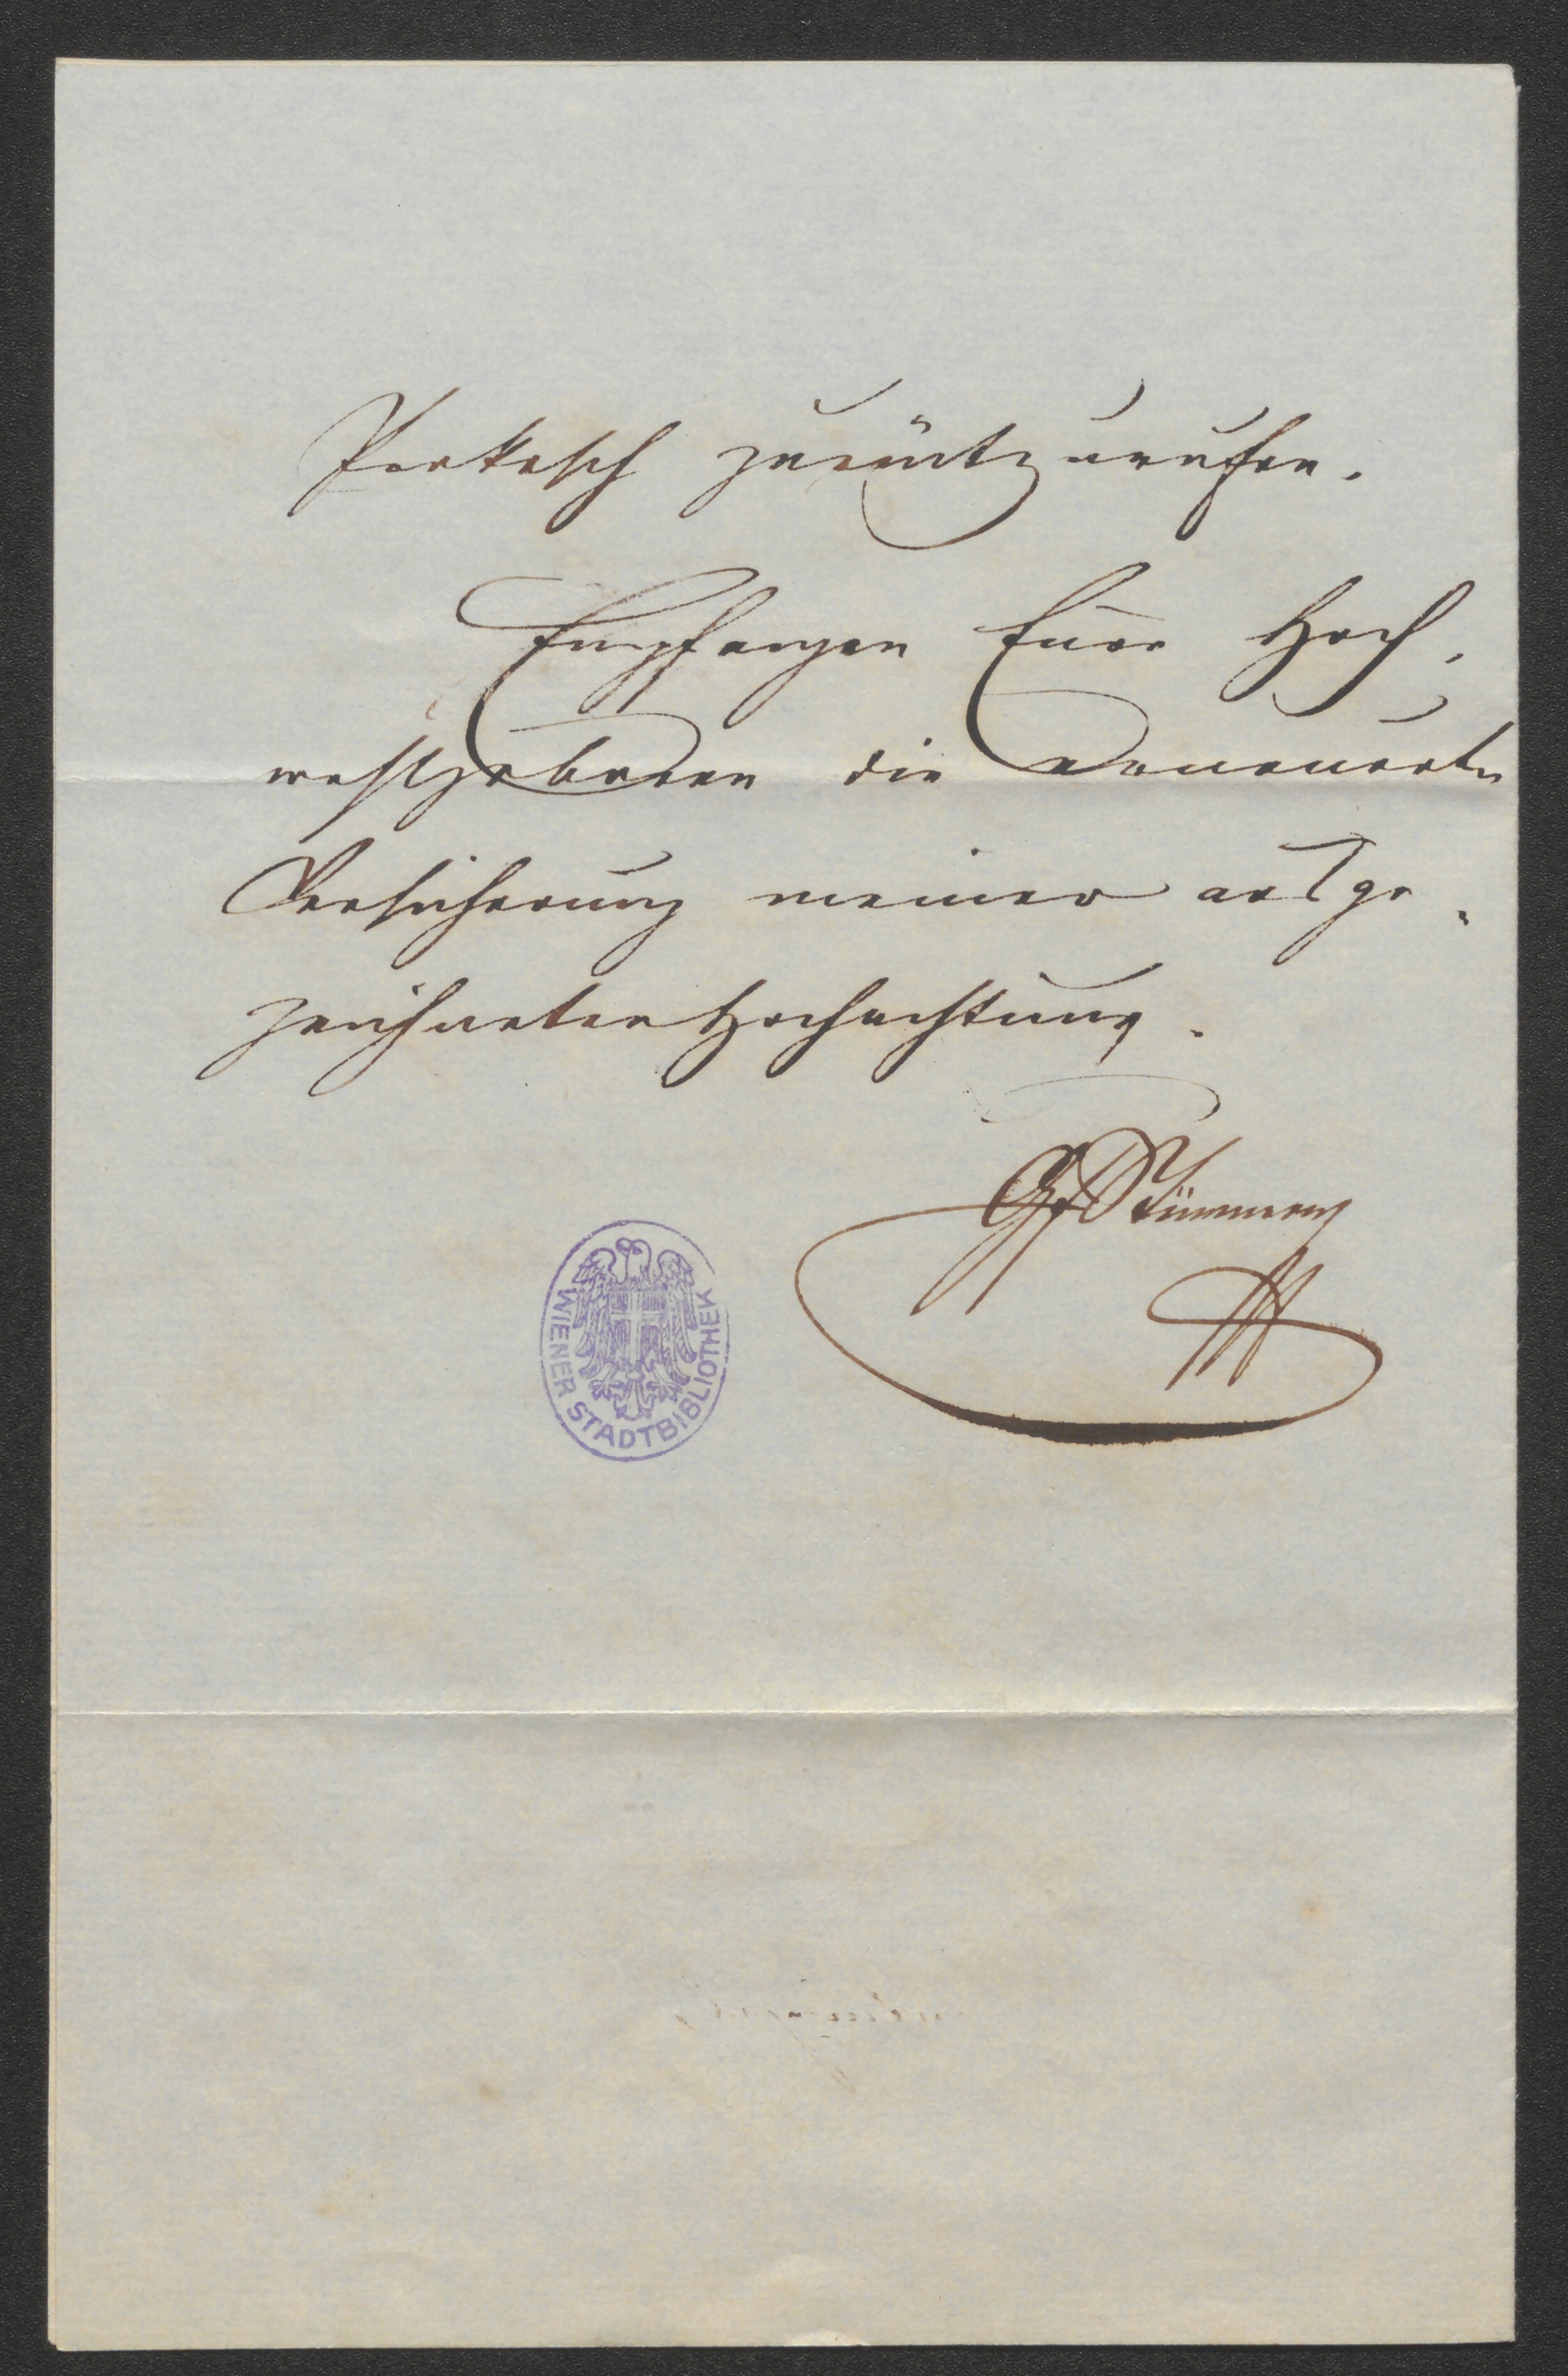 Prokesch zurükzurufen.
Empfangen Euer Hoch-
wohlgeboren die erneuerte
Versicherung meiner ausge-
zeichneten Hochachtung.
Gf Stürmer
WIENER STADTBIBLIOTHEK